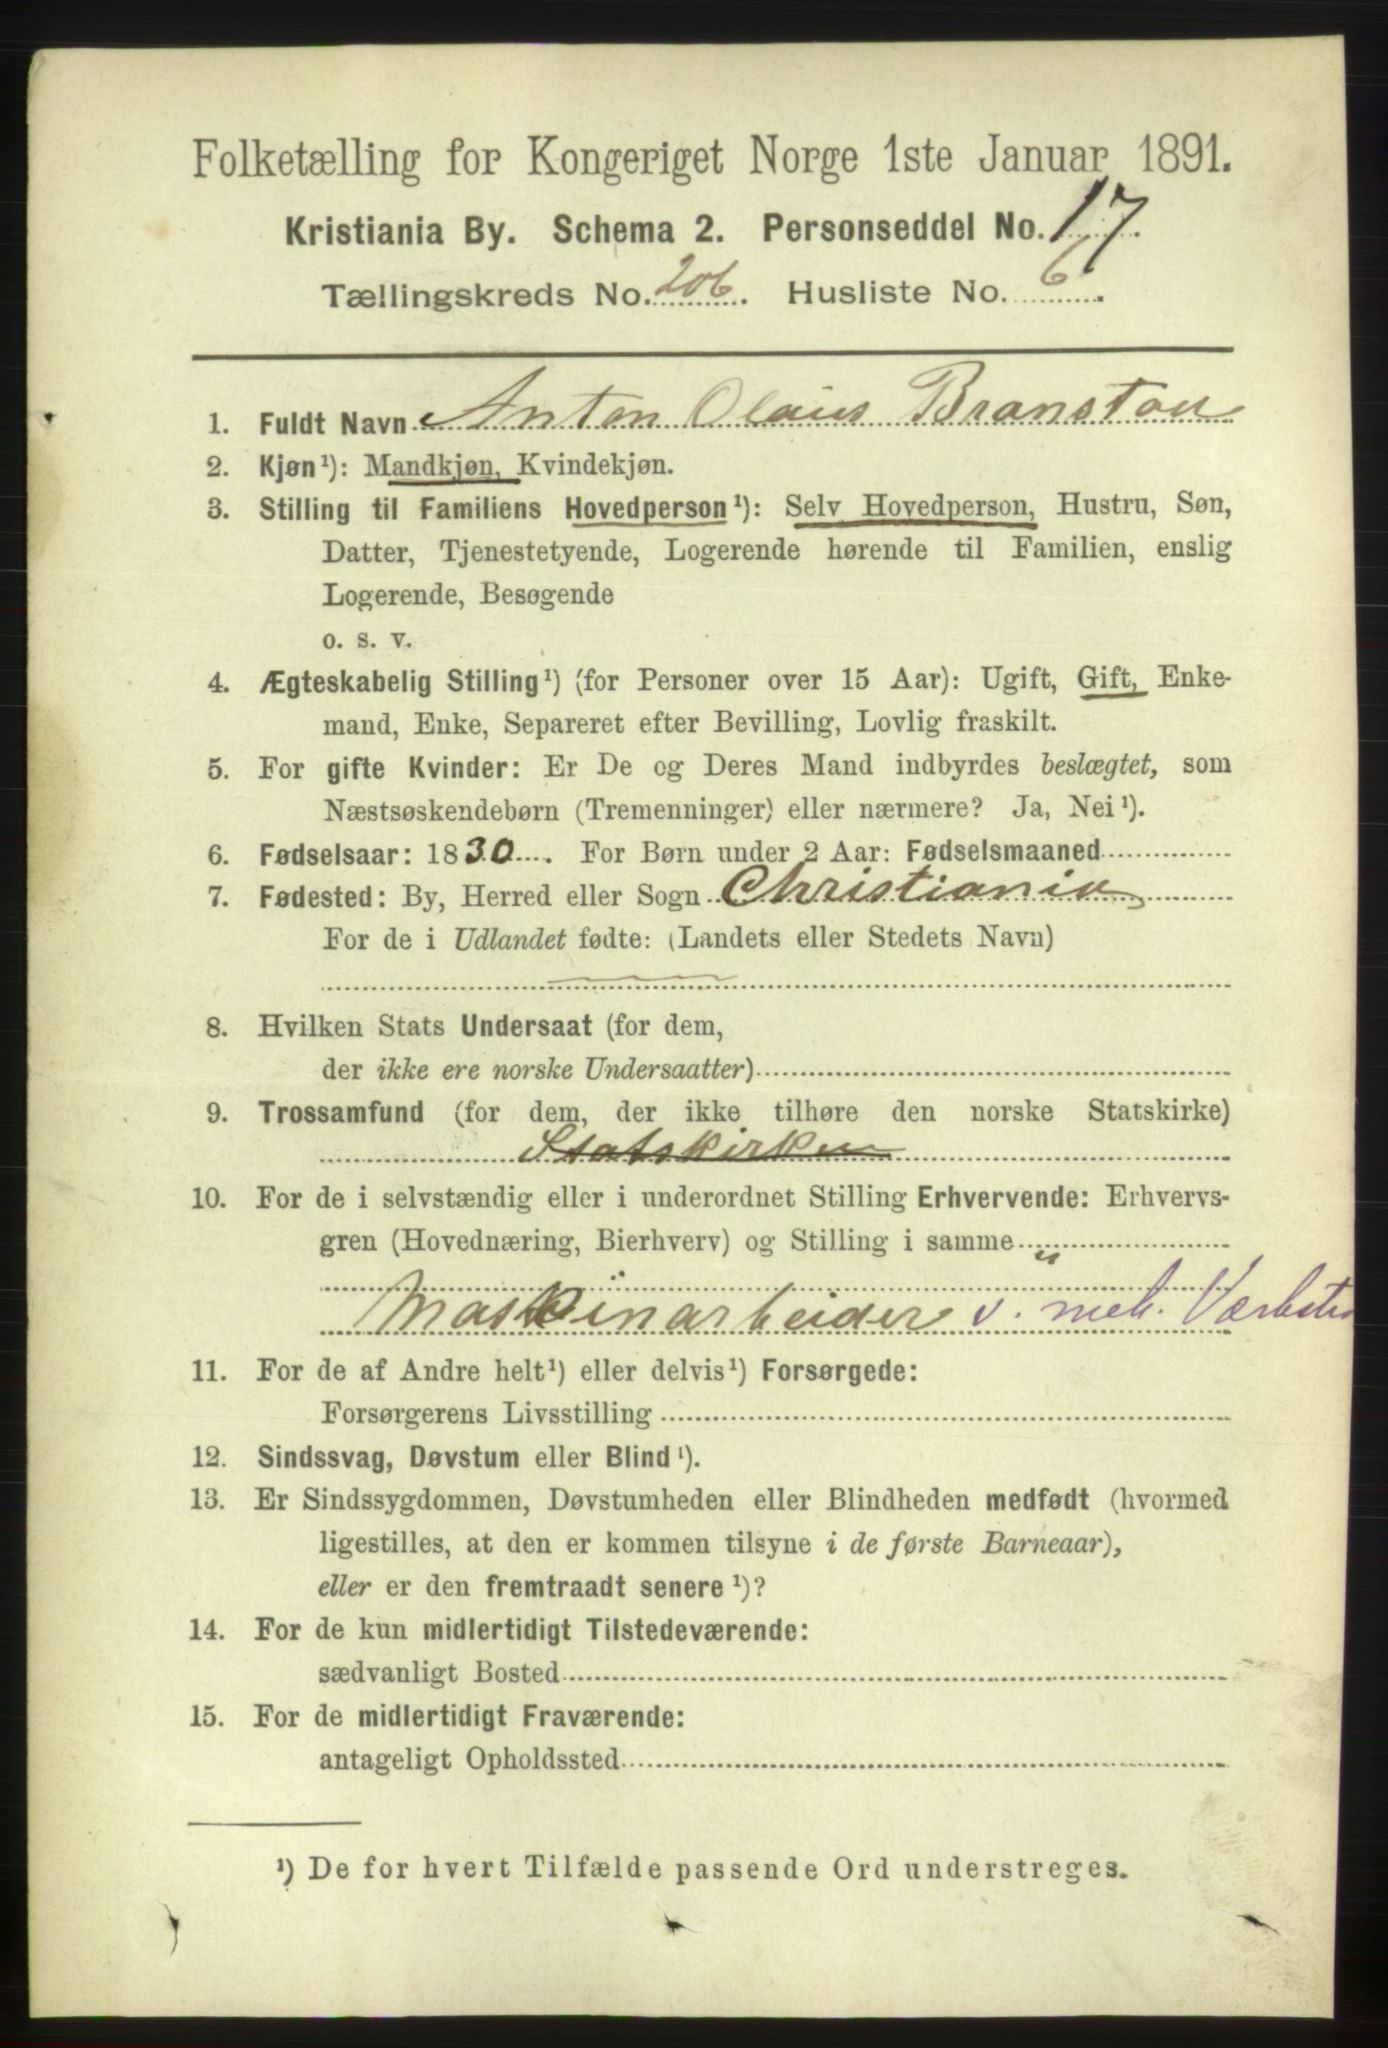 Folketælling for Kongeriget Norge 1ste Januar 1891.
Kristiania By. Schema 2. Personseddel No. 17.
Tællingskreds No. 206. Husliste No. 6.
1. Fuldt Navn Anton Olaus Branstou
2. Kjøn¹): Mandkjøn, Kvindekjøn.
3. Stilling til Familiens Hovedperson¹): Selv Hovedperson, Hustru, Søn,
Datter, Tjenestetyende, Logerende hørende til Familien, enslig
Logerende, Besøgende
o. s. v.
4. Ægteskabelig Stilling¹) (for Personer over 15 Aar): Ugift, Gift, Enke-
mand, Enke, Separeret efter Bevilling, Lovlig fraskilt.
5. For gifte Kvinder: Er De og Deres Mand indbyrdes beslægtet, som
Næstsøskendebørn (Tremenninger) eller nærmere? Ja, Nei¹).
6. Fødselsaar: 1830. For Børn under 2 Aar: Fødselsmaaned
7. Fødested: By, Herred eller Sogn Christiania
For de i Udlandet fødte: (Landets eller Stedets Navn)
8. Hvilken Stats Undersaat (for dem,
der ikke ere norske Undersaatter)
9. Trossamfund (for dem, der ikke tilhøre den norske Statskirke)
Statskirken
10. For de i selvstændig eller i underordnet Stilling Erhvervende: Erhvervs-
gren (Hovednæring, Bierhverv) og Stilling i samme
Maskinarbeider v. mek. Værksted
11. For de af Andre helt¹) eller delvis¹) Forsørgede:
Forsørgerens Livsstilling
12. Sindssvag, Døvstum eller Blind¹).
13. Er Sindssygdommen, Døvstumheden eller Blindheden medfødt (hvormed
ligestilles, at den er kommen tilsyne i de første Barneaar),
eller er den fremtraadt senere¹)?
14. For de kun midlertidigt Tilstedeværende:
sædvanligt Bosted
15. For de midlertidigt Fraværende:
antageligt Opholdssted
¹) De for hvert Tilfælde passende Ord understreges.